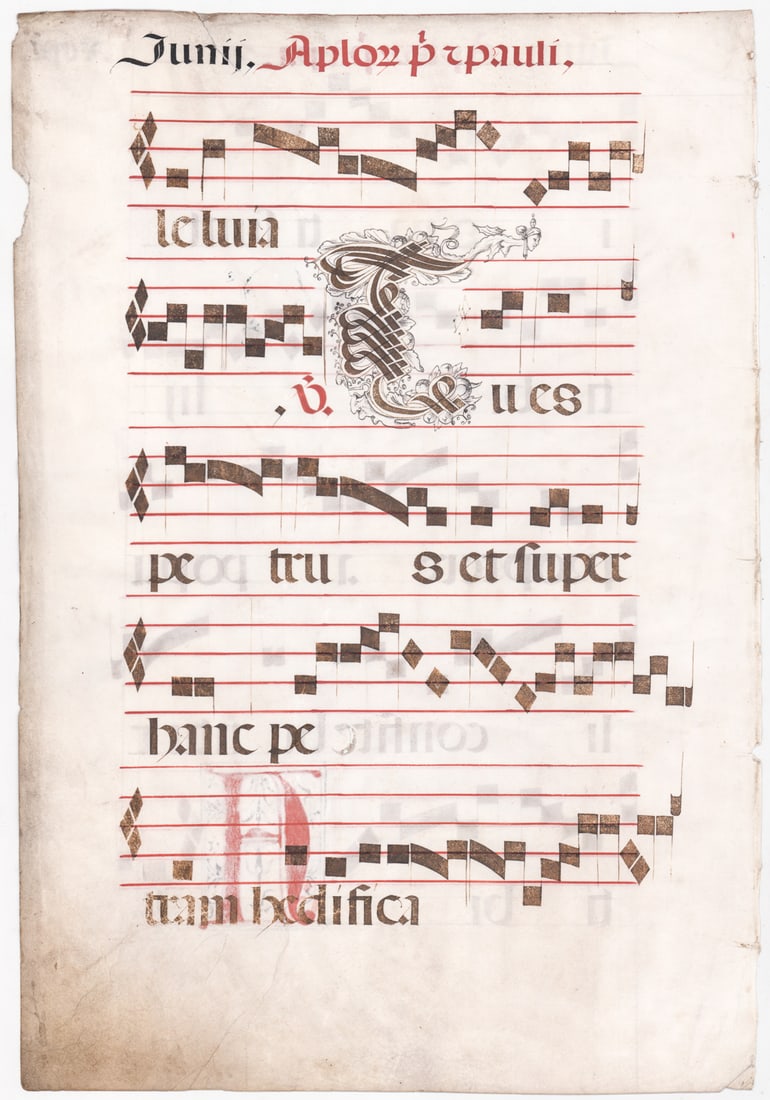 Junij. Aploꝝ p̄ ⁊ pauli.
leluia
. ℣. Tu es
pe tru s et super
hanc pe
tram hedifica